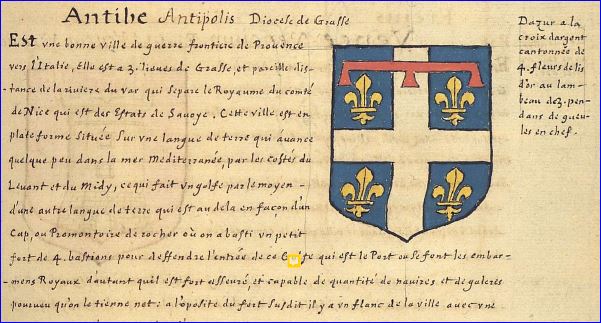 Antibe Antipolis Diocese de Grasse
Est vne bonne ville de guerre frontiere de Prouence
vers l'Italie, Elle est a 3. lieues de Grasse, et pareille dis-
-tance de la riuiere du var qui separe le Royaume du comté
de Nice qui est des Estats de Sauoye. Cette ville est en
plate forme située sur vne langue de terre qui auance
quelque peu dans la mer Mediterranée, par les costés du
Leuant et du Midy, ce qui fait vn golfe par le moyen
d'une autre langue de terre qui est au dela en façon d'un
Cap, ou Promontoire de rocher où on a basti vn petit
fort de 4. bastions pour deffendre l'entrée de ce qui est le Port ou se font les embar-
-mens Royaux d'autant quil est fort asseuré, et capable de quantité de nauires et de galeres
pourueu qu'on le tienne net: a l'oposite du fort susdit il y a vn flanc de la ville auec vne
Dazur a la
croix dargent
cantonnée de
4. fleurs de lis
d'or au lam-
beau de 3. pen-
dans de gueu-
les en chef.